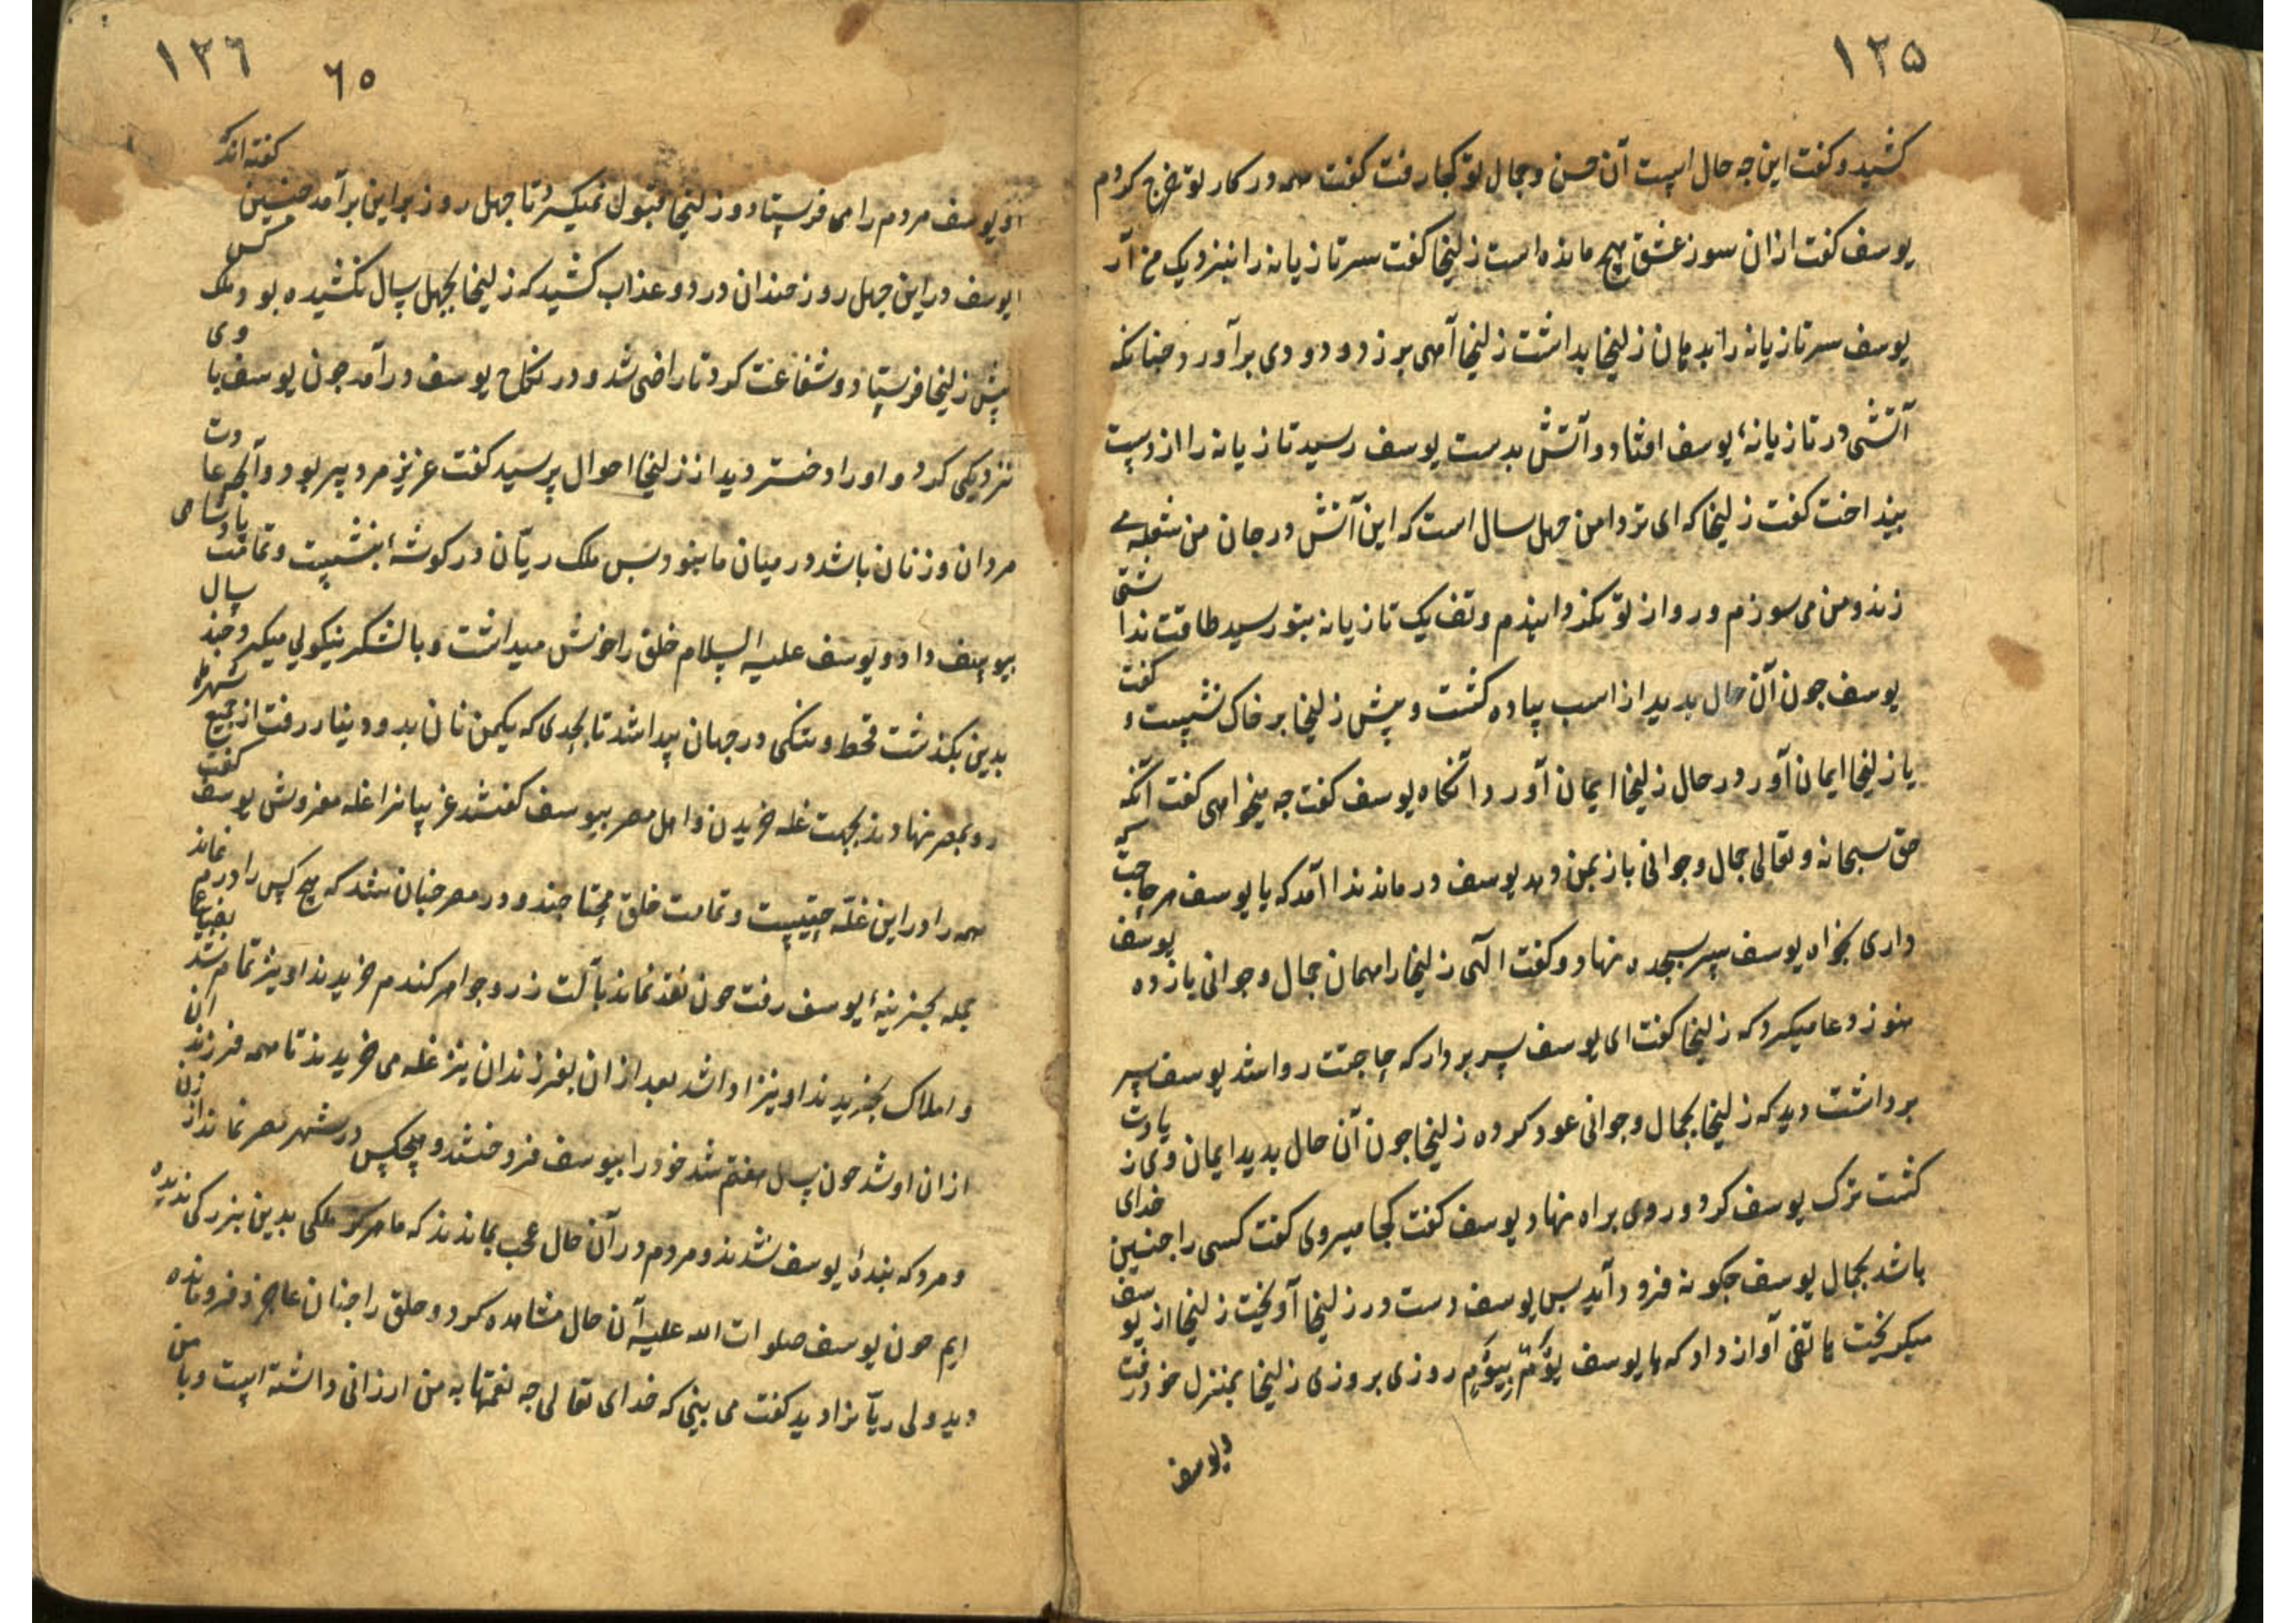 ۱۲۵
کشید و کفت این جه حال است آن حسن و جمال تو کجا رفت کفت همه در کار تو خرج کردم
یوسف کفت ازان سوز عشق هیچ مانده است زلیخا کفت سر تازیانه را بنزدیک من آر
یوسف سر تازیانه را بدهان زلیخا بداشت زلیخا آهی بزد و دودی برآورد چنانکه
آتشی در تازیانهٔ یوسف افتاد و آتش بدست یوسف رسید تازیانه را از دست
بینداخت کفت زلیخا که ای تردامن جهل سال است که این آتش در جان من شعله می
زند و من می سوزم و رو از تو نکردانیدم و تف یک تازیانه بتو رسید طاقت نداشتی
یوسف جون آن حال بدید از اسب پیاده کشت و پیش زلیخا بر خاک نشست و کفت
یا زلیخا ایمان آور در حال زلیخا ایمان آورد آنکاه یوسف کفت جه میخواهی کفت آنکه
حق سبحانه و تعالی جمال و جوانی باز بمن دهد یوسف در ماند ندا آمد که یا یوسف هر حاجت که
داری بخواه یوسف سر بسجده نهاد و کفت الهی زلیخا را همان جمال و جوانی باز ده یوسف
هنوز دعا میکرد که زلیخا کفت ای یوسف سر بردار که حاجتت روا شد یوسف سر
برداشت دید که زلیخا بجمال و جوانی عود کرده زلیخا جون آن حال بدید ایمان وی زیادت
کشت ترک یوسف کرد و روی براه نهاد یوسف کفت کجا میروی کفت کسی را جنین خدای
باشد بجمال یوسف جکونه فرود آید بس یوسف دست در زلیخا آویخت زلیخا از یوسف
میکریخت هاتفی آواز داد که یا یوسف یَوْمٌ بِیَوْمٍ روزی بروزی زلیخا بمنزل خود رفت
و یوسف
۱۲٦
٦۵
او یوسف مردم را می فرستاد و زلیخا قبول نمیکرد تا جهل روز براین برآمد جنین کفته اند که
یوسف در این جهل روز جندان درد و عذاب کشید که زلیخا بجهل سال نکشیده بود ملک کس
پیش زلیخا فرستاد و شفاعت کرد تا راضی شد و در نکاح یوسف درآمد جون یوسف با وی
نزدیکی کرد و اورا دختر دید از زلیخا احوال پرسید کفت عزیز مرد پیر بود و آنجه عادت
مردان و زنان باشد در میان ما نبود بس ملک ریّان در کوشهٔ بنشست و تمامت پادشاهی
بیوسف داد و یوسف علیه السلام خلق را خوش میداشت و با لشکر نیکوئی میکرد جند سال
بدین بکذشت قحط و تنکی در جهان پیدا شد تا بحدی که یکمن نان بدو دینار رفت از جمیع شهرها
رو بمصر نهادند بجهت غله خریدن و اهل مصر بیوسف کفتند غریبانرا غله مفروش یوسف کفت
همه را در این غلّه حقیست و تمامت خلق محتاجند و در مصر جنان شد که هیج کس را درم نماند
جمله بخزینهٔ یوسف رفت جون نقد نماند بآلت زر و جواهر کندم خریدند او نیز تمام شد بضیاعها
و املاک بخریدند او نیز اورا شد بعد ازان بفرزندان نیز غله می خریدند تا همه فرزندان
ازان او شد جون سال هفتم شد خود را بیوسف فروختند و هیجکس در شهر مصر نماند از زن
و مرد که بندهٔ یوسف نشدند و مردم در آن حال عجب بماندند که ما هرکز ملکی بدین بزرکی ندیده
ایم جون یوسف صلوات الله علیه آن حال مشاهده کرد و خلق را جنان عاجز و فرومانده
دید ولی ریّانرا دید کفت می بینی که خدای تعالی جه نعمتها به من ارزانی داشته است و با من